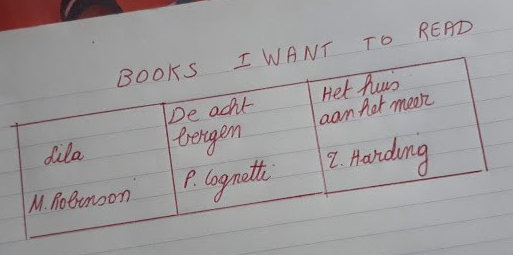 BOOKS I WANT TO READ
Lila
M. Robinson
De acht
bergen
P. Cognetti
Het huis
aan het meer
T. Harding